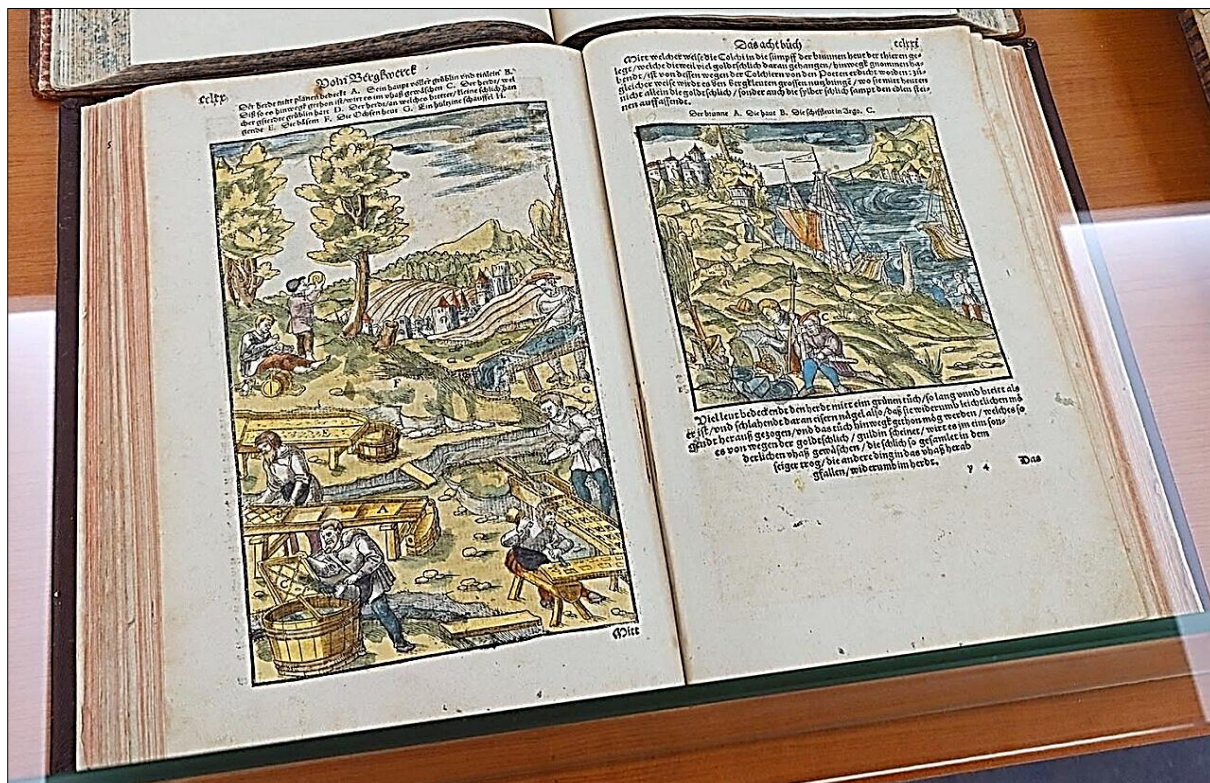 Vom Bergkwerck
cclxx.
Der herdt mitt plänen bedeckt A. Sein haupt voller gräblin vnd einlein B.
Diß so es hinwegk gethon ist/wirt es im vhaß gewäschen C. Der herdt/wel
cher gefierdte gräblin hatt D. Der herdt/an welches bretter/kleine schlich han
gende E. Die bäsem F. Die Ochsen heut G. Ein hültzine schauffel H.
F
A
C
Mitt
Das acht bůch
cclxxi
Mitt welcher weise die Colchi in die sümpff der brunnen heut der thieren ge-
lege/welche dieweil viel goldtschlich daran gehangen/hinwegk gnommen ha-
bendt/ist von dessen wegen der Colchiern von den Poeten erdicht worden: zů
gleicher weise wirdt es den Bergkleuten grossen nutz bringen/wo sie mitt heuten
nicht allein die goldtschlich/sonder auch die sylber schlich sampt den edlen stei-
nen auffassendt.
Der brunne A. Die haut B. Die schiffleut in Argo. C.
C
Viel leut bedeckendt den herdt mitt eim grünen tůch/so lang vnnd breitt als
er ist/vnd schlahendt daran eisern nägel also/daß sie widerumb leichtlichen mö
gendt herauß gezogen/vnd das tůch hinwegk gethon mög werden/welches so
es von wegen der goldtschlich/guldin scheinet/wirt es im eim son-
derlichen vhaß gewäschen/die schlich so gesamlet in dem
seiger trog/die andere ding in das vhaß herab
gfallen/widerumb im herdt.
y 4
Das